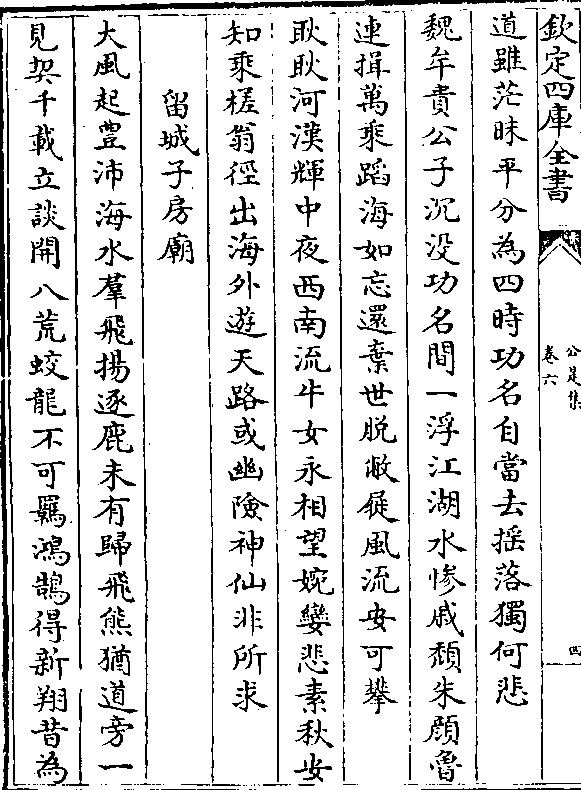 欽定四庫全書
公是集
卷六
四
道雖茫昧平分為四時功名自當去揺落獨何悲
魏牟貴公子沉没功名間一浮江湖水惨戚頽朱顔魯
連揖萬乘蹈海如忘還棄世脱敝屣風流安可攀
耿耿河漢輝中夜西南流牛女永相望婉孌悲素秋安
知乘槎翁徑出海外遊天路或幽險神仙非所求
留城子房廟
大風起豊沛海水羣飛揚逐鹿未有歸飛熊猶道旁一
見契千載立談開八荒蛟龍不可羈鴻鵠得新翔昔為